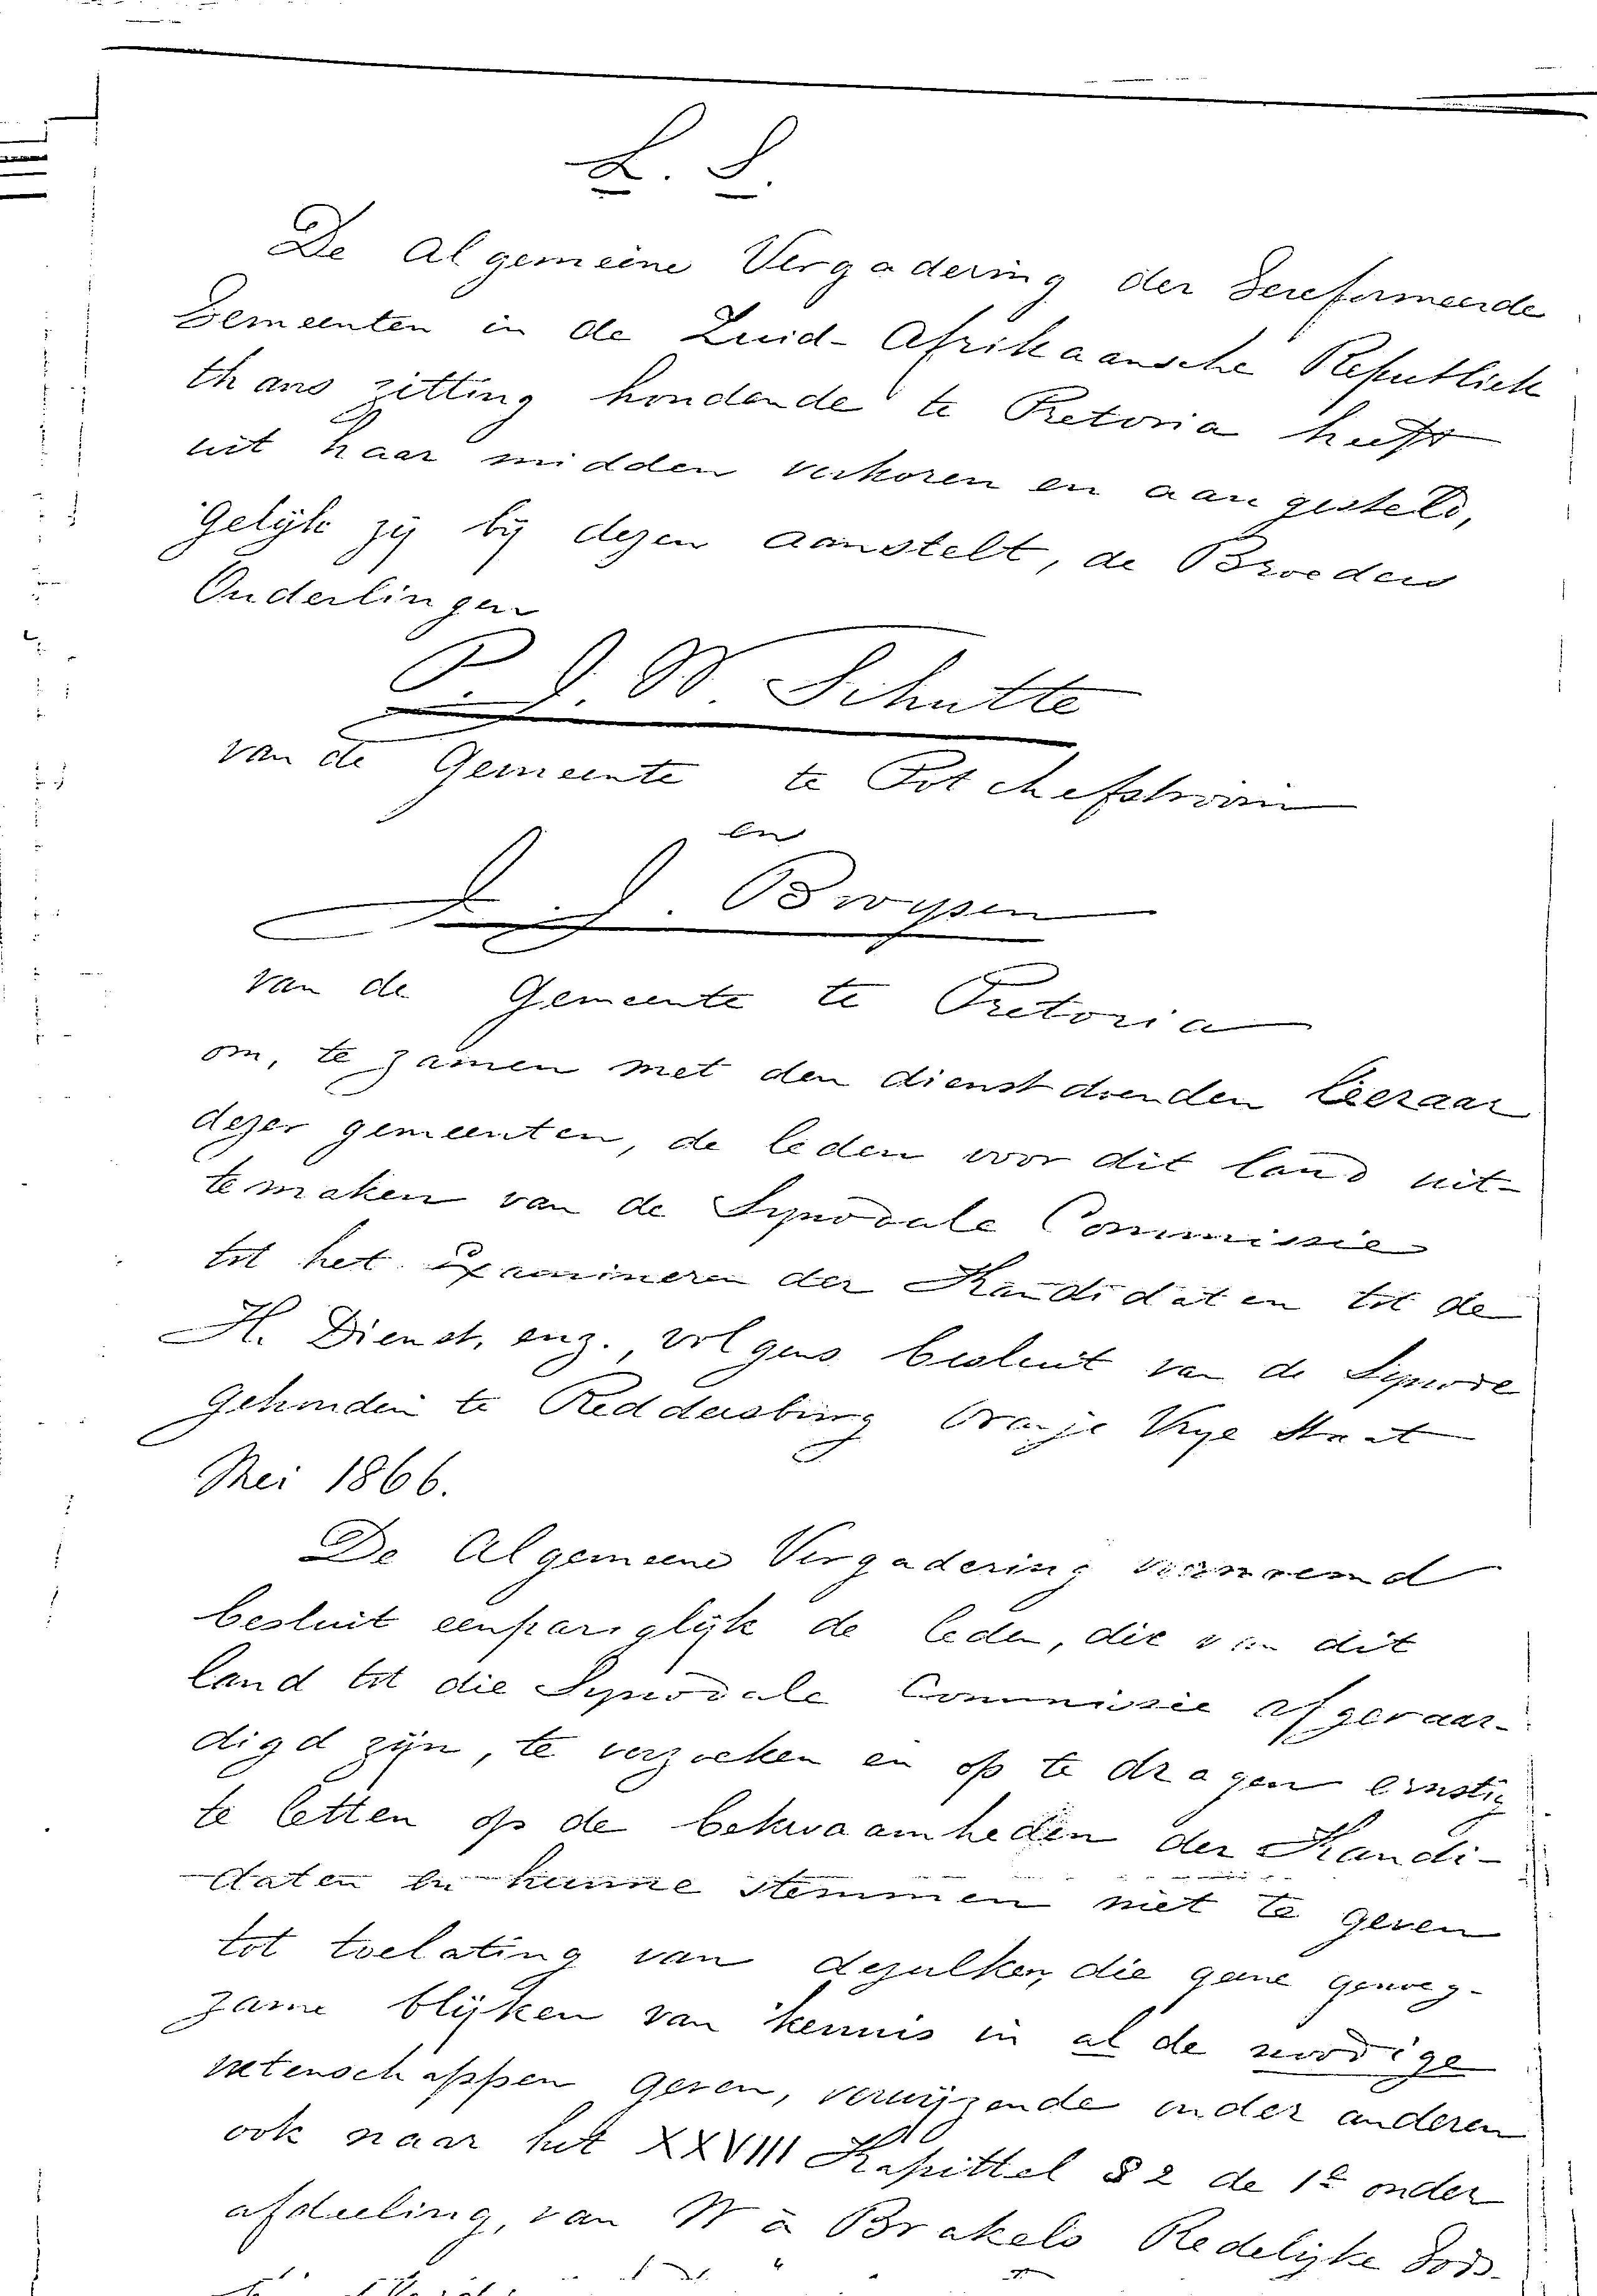 L. S.
De Algemeene Vergadering der Gereformeerde
Gemeenten in de Zuid-Afrikaansche Republiek
thans zitting houdende te Pretoria heeft
uit haar midden verkoren en aangesteld,
Gelijk zij bij dezen aanstelt, de Broeders
Ouderlingen
P. J. W. Schutte
van de Gemeente te Potchefstroom
en
J. J. Bruysen
van de Gemeente te Pretoria
om, te zamen met den dienstdoenden leeraar
dezer gemeenten, de leden voor dit land uit-
temaken van de Synodale Commissie
tot het Examineren der Kandidaten tot de
H. Dienst, enz., volgens besluit van de Synode
Gehouden te Reddersburg Oranje Vrye Staat
Mei 1866.
De Algemeene Vergadering voornoemd
besluit eenpariglijk de leden, die van dit
land tot die Synodale Commissie afgevaar-
digd zijn, te verzoeken en op te dragen ernstig
te letten op de bekwaamheden der Kandi-
daten en hunne stemmen niet te geven
tot toelating van dezulken, die geene genoeg-
zame blijken van kennis in al de noodige
wetenschappen geven, verwijzende onder anderen
ook naar het XXVIII Kapittel § 2 de 1e onder
afdeeling, van W à Brakels Redelijke Gods-